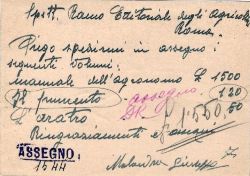 Spett. Ramo Editoriale degli Agricoltori
Roma.
Prego spedirmi in assegno i
seguenti volumi:
Manuale dell'agronomo £ 1500
Il frumento
assegno
120
L'aratro
50
£ 1550
Ringraziamenti
ASSEGNO
1544
Giuseppe